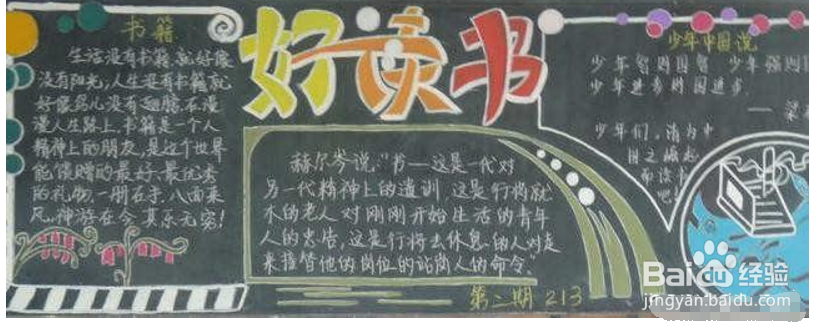 书籍
生活没有书籍,就好像
没有阳光,人生没有书籍,就
好像鸟儿没有翅膀.在漫
漫人生路上,书籍是一个人
精神上的朋友,是这个世界
能馈赠的最好、最优秀
的礼物.一册在手,八面来
风,神游在今,其乐无穷!
好读书
赫尔岑说:"书——这是一代对
另一代精神上的遗训,这是行将就
木的老人对刚刚开始生活的青年
人的忠告,这是行将去休息的人对走
来接替他的岗位的站岗人的命令。"
第二期 213
少年中国说
少年智则国智 少年强则
少年进步则国进步.
——梁
少年们,请为中
国之崛起
而读书
吧!
Baidu 经验
jingyan.baidu.com